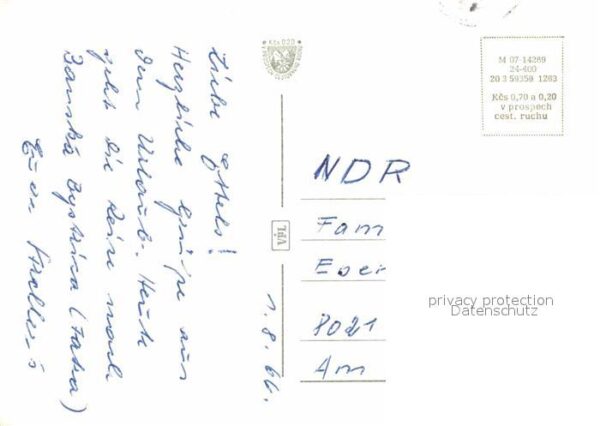 Liebe Ethels!
Herzliche Grüße aus
dem Urlaub. Heute
geht die Reise nach
Banská Bystrica (Tatra)
Eure
1.8.66.
* Kčs 0,20 *
M 07-14269
24-400
20 3 59359 1263
Kčs 0,70 a 0,20
v prospech
cest. ruchu
NDR
Fam
Ever
8021
Am
privacy protection
Datenschutz